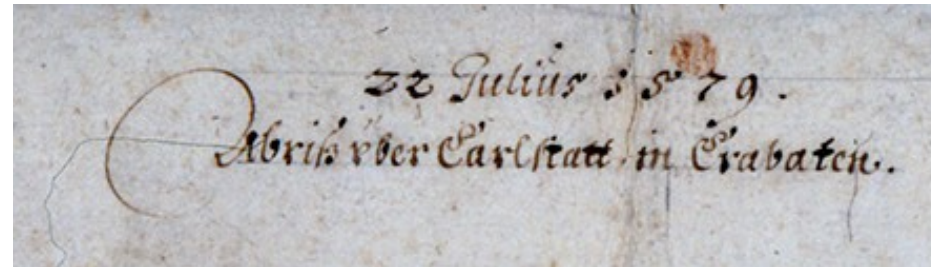 22 Julius 1579.
Abriß vber Carlstatt in Crabaten.